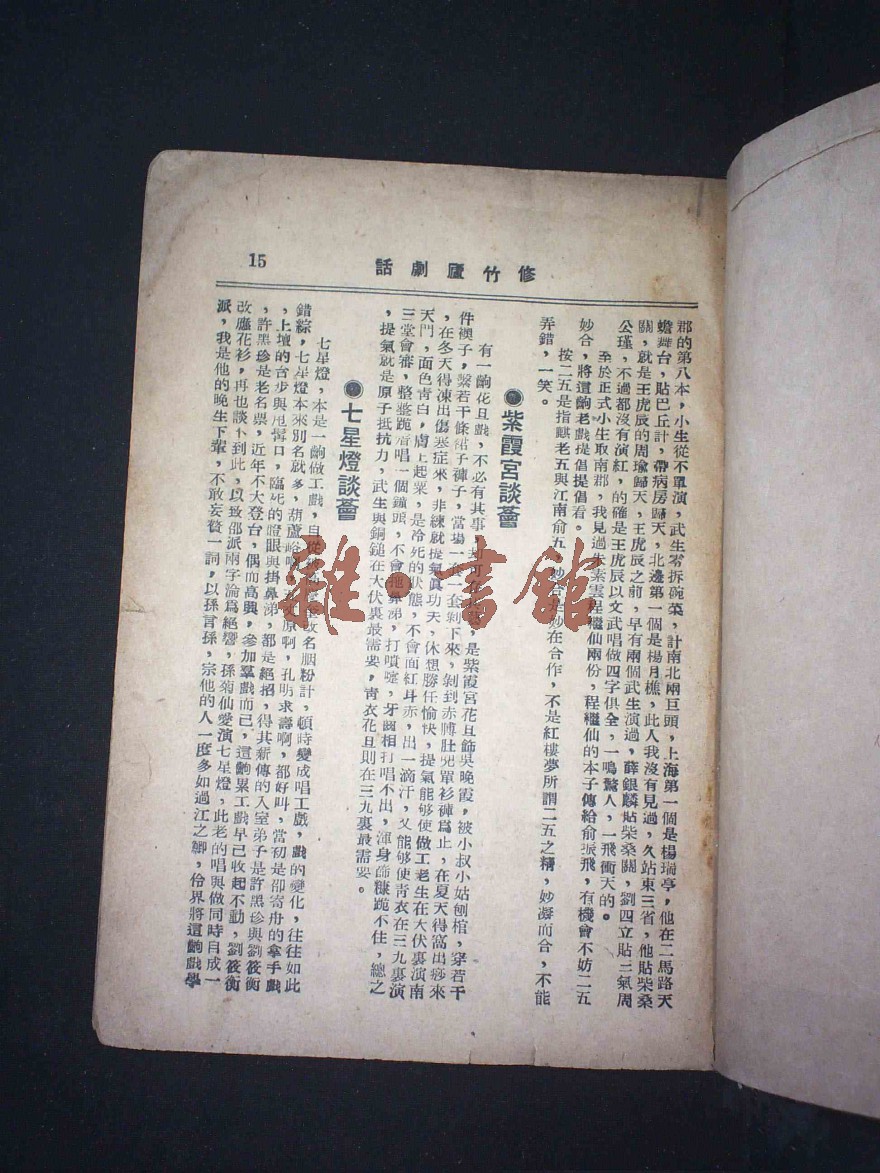 修竹廬劇話
15
郡的第八本，小生從不單演，武生零拆碗菜，計南北兩巨頭，上海第一個是楊瑞亭，他在二馬路天
蟾舞台，貼巴丘計，帶病房歸天，北邊第一個是楊月樵，此人我沒有見過，久站東三省，他貼柴桑
關，就是王虎辰的周瑜歸天，王虎辰之前，早有兩個武生演過，薛銀麟貼柴桑關，劉四立貼三氣周
公瑾，不過都沒有演紅，的確是王虎辰以文武唱做四字俱全，一鳴驚人，一飛衝天的。
至於正式小生取南郡，我見過朱素雲程繼仙兩份，程繼仙的本子傳給俞振飛，有機會不妨二五
妙合，將這齣老戲提倡提倡看。
按二五是指麒老五與江南俞五，妙合是妙在合作，不是紅樓夢所謂二五之精，妙凝而合，不能
弄錯，一笑。
●紫霞宮談薈
有一齣花旦戲，不必有其事，是紫霞宮花旦飾吳晚霞，被小叔小姑刨棺，穿若干
件襖子，繫若干條裙子褲子，當場一套一套剝下來，剝到赤膊肚兜單衫褲爲止，在夏天得窩出痧來
，在冬天得凍出傷寒症來，非練就提氣眞功夫，休想勝任愉快，提氣能够使做工老生在大伏裏演南
天門，面色青白，膚上起粟，是冷死的狀態，不會面紅耳赤，出一滴汗，又能够使青衣在三九裏演
三堂會審，整整跪着唱一個鐘頭，不會拖鼻涕，打噴嚏，牙齒相打唱不出，渾身篩糠跪不住，總之
，提氣就是原子抵抗力，武生與銅鎚在大伏裏最需要，青衣花旦則在三九裏最需要。
●七星燈談薈
七星燈，本是一齣做工戲，自從改名胭粉計，頓時變成唱工戲，戲的變化，往往如此
錯綜，七星燈本來別名就多，葫蘆峪啊，五丈原啊，孔明求壽啊，都好叫，當初是邵寄舟的拿手戲
，上壇的台步與甩髯口，臨死的瞪眼與掛鼻涕，都是絕招，得其薪傳的入室弟子是許黑珍與劉筱衡
，許黑珍是老名票，近年不大登台，偶而高興，參加羣戲而已，這齣累工戲早已收起不動，劉筱衡
改應花衫，再也談不到此，以致邵派兩字淪爲絕響，孫菊仙愛演七星燈，此老的唱與做同時自成一
派，我是他的晚生下輩，不敢妄贊一詞，以孫言孫，宗他的人一度多如過江之鯽，伶界將這齣戲學
雜·書館